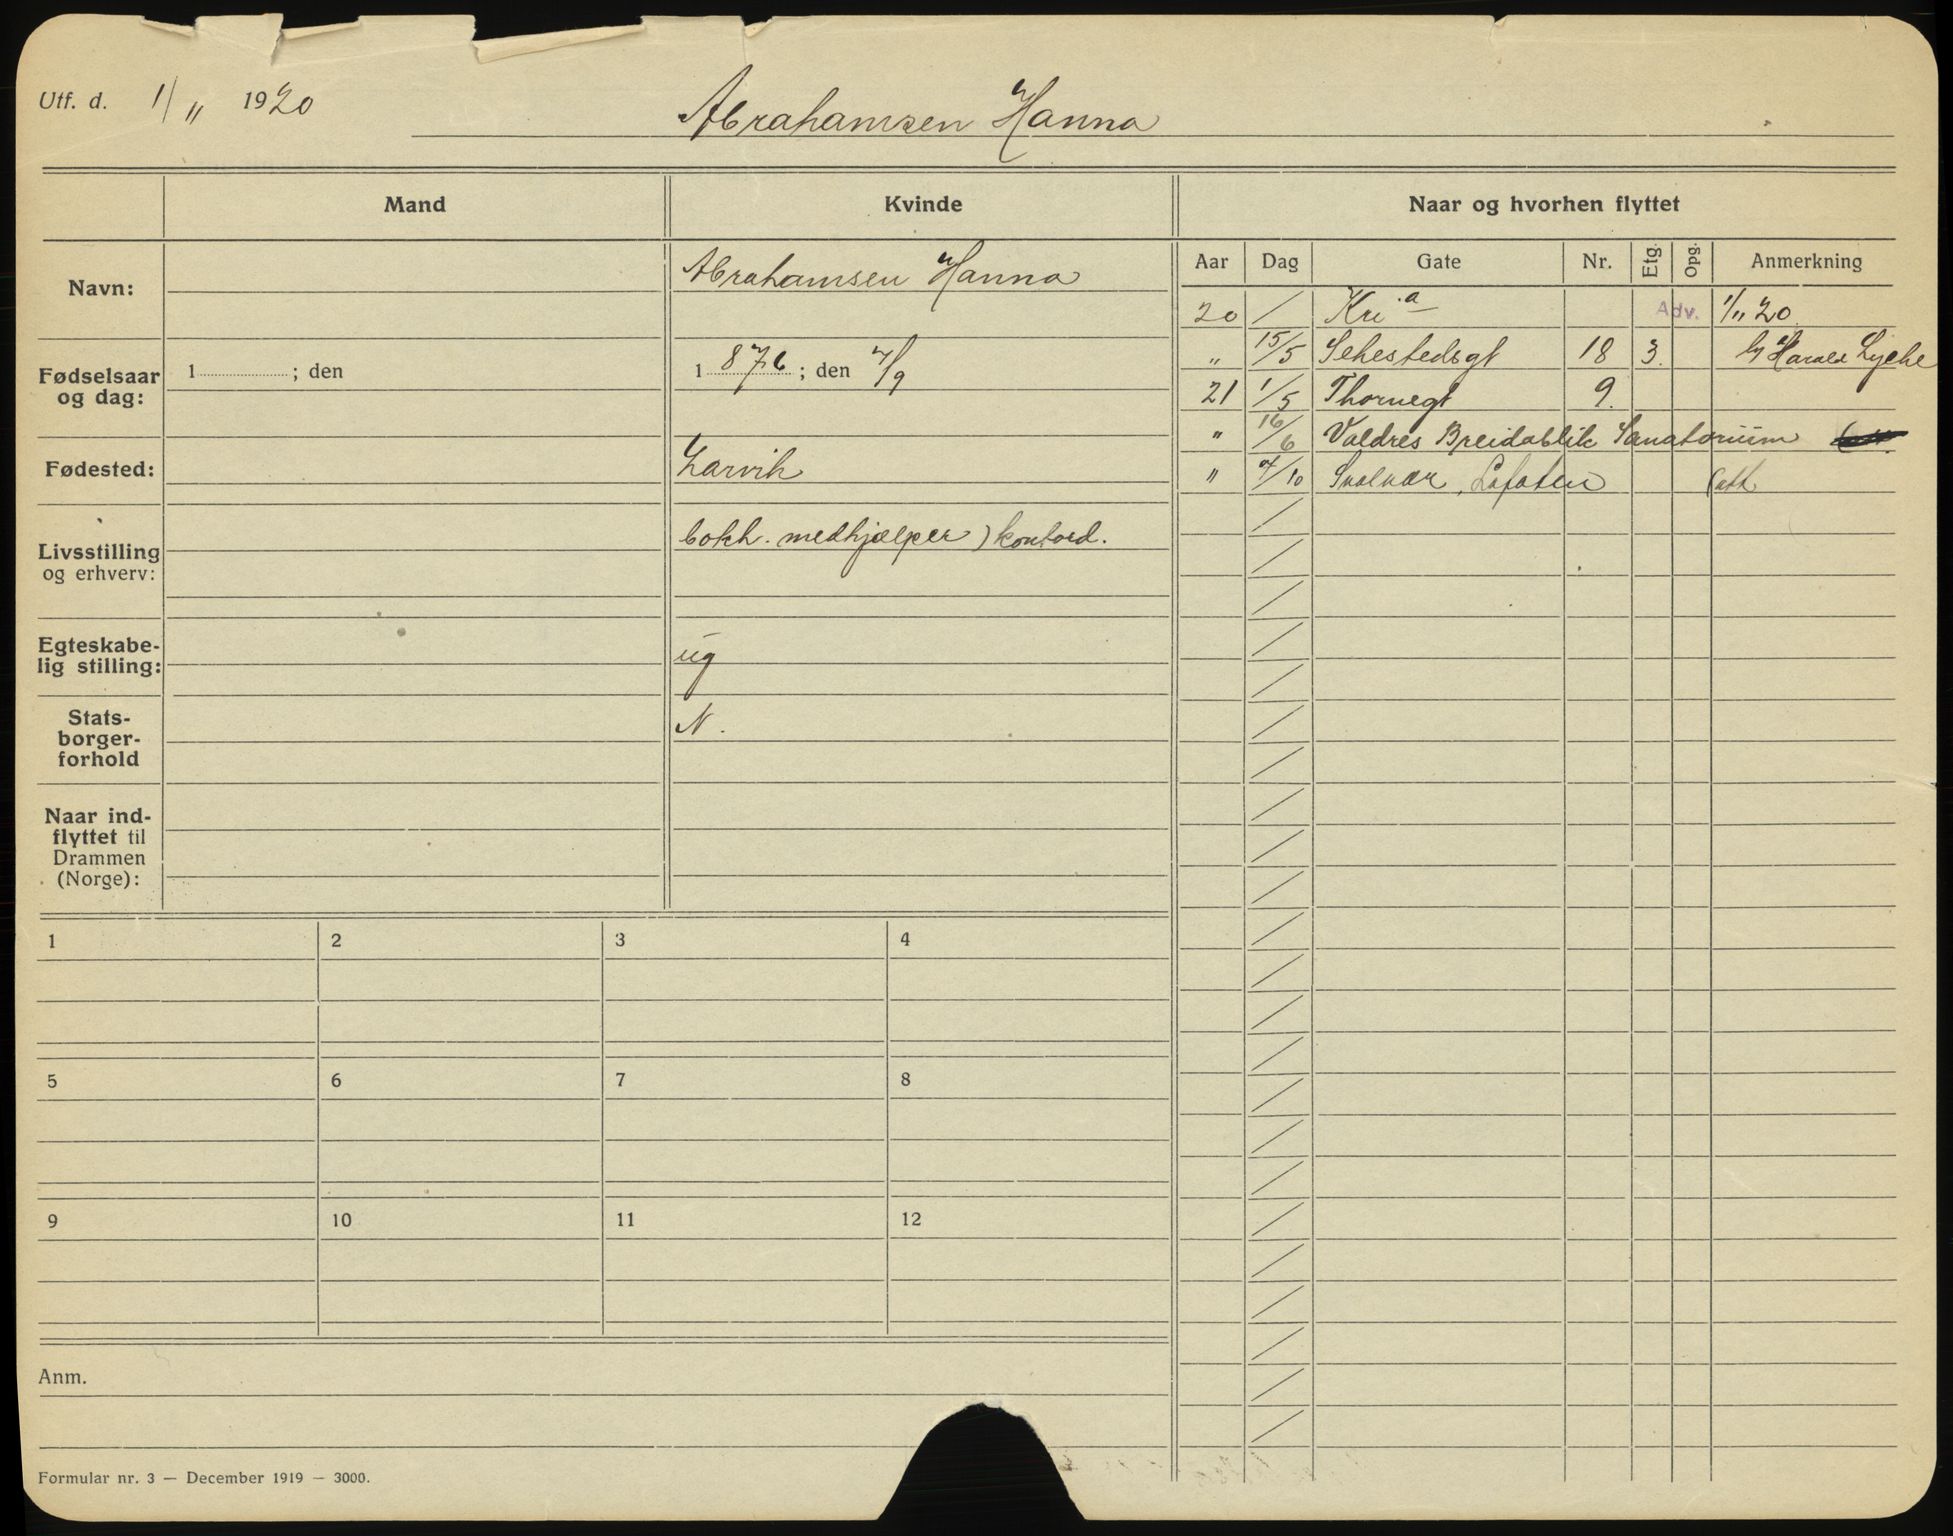 Utf. d. 1/11 1920 Abrahamsen Hanna
Mand Kvinde Naar og hvorhen flyttet
Aar Dag Gate Nr. Etg. Opg. Anmerkning
Navn: Abrahamsen Hanna
20 / Kria Adv. 1/11 20
" 15/5 Sehestedsgt 18 3. h/ Harald Lyche
Fødselsaar
og dag: 1 ; den 1 876 ; den 7/9
21 1/5 Thornegt 9.
" 16/6 Valdres Breidablik Sanatorium
Fødested: Larvik
" 7/10 Svolvær, Lofoten
Livsstilling
og erhverv: bokh. medhjælper) kontord.
Egteskabe-
lig stilling: ug
Stats-
borger-
forhold N.
Naar ind-
flyttet til
Drammen
(Norge):
1 2 3 4
5 6 7 8
9 10 11 12
Anm.
Formular nr. 3 — December 1919 — 3000.